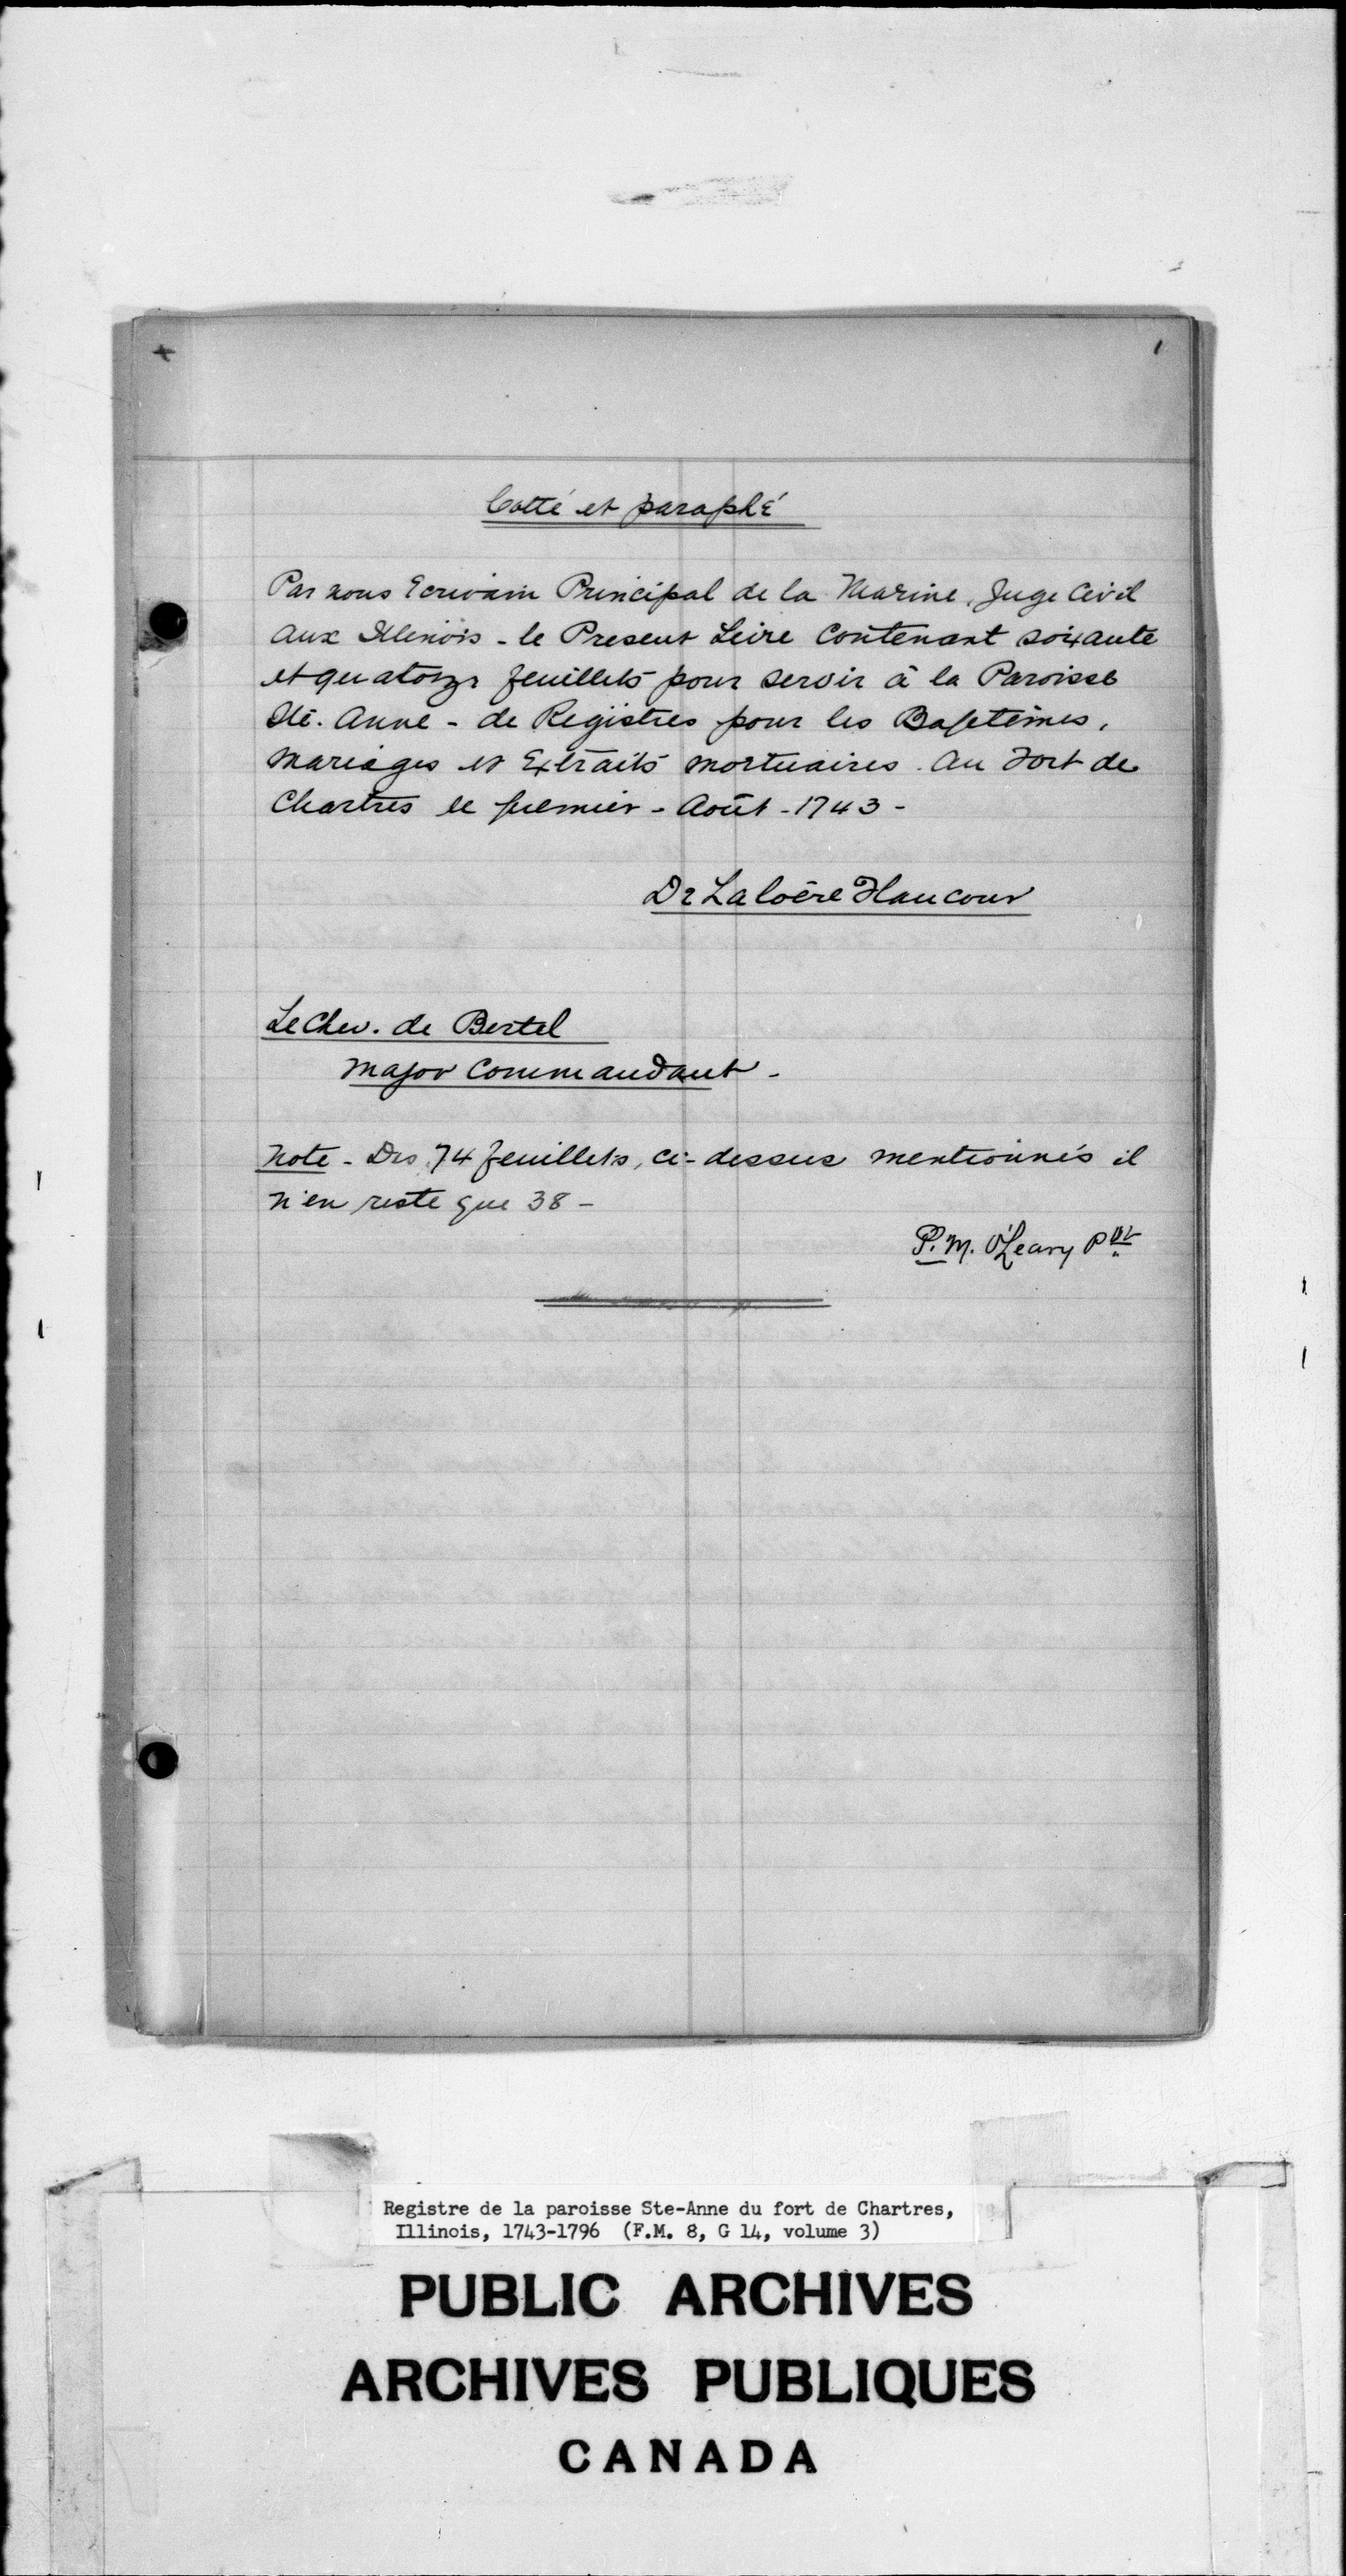 1
Cotté et paraphé
Par nous Ecrivain Principal de la Marine, Juge Civil
aux Illinois - le Present Livre Contenant soixante
et quatorze feuillets pour servir à la Paroisse
Ste. Anne - de Registres pour les Baptêmes,
Mariages et Extraits mortuaires. Au Fort de
Chartres le premier - Août - 1743 -
De Laloëre Flaucour
Le Chev. de Bertel
Major Commandant -
Note - Des 74 feuillets, ci-dessus mentionnés il
n'en reste que 38 -
P. M. O'Leary Ptr
Registre de la paroisse Ste-Anne du fort de Chartres,
Illinois, 1743-1796 (F.M. 8, G 14, volume 3)
PUBLIC ARCHIVES
ARCHIVES PUBLIQUES
CANADA